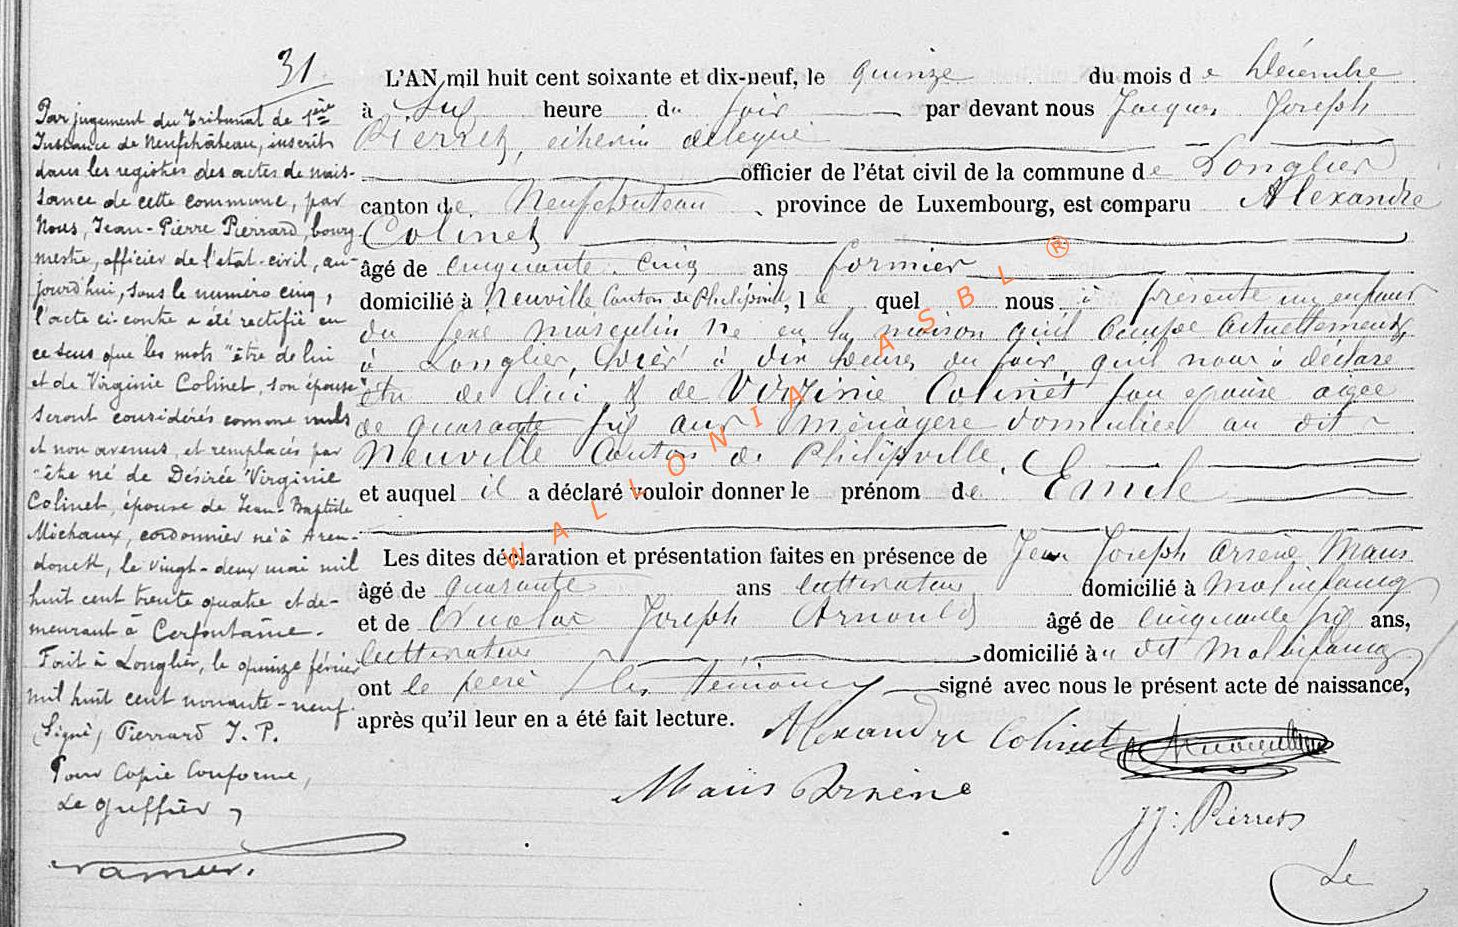 31
Par jugement du Tribunal de 1ère
Instance de Neufchâteau, inscrit
dans les registres des actes de nais-
sance de cette commune, par
Nous, Jean-Pierre Pierrard, bourg
mestre, officier de l'état-civil, au-
jourd'hui, sous le numéro cinq,
l'acte ci-contre a été rectifié en
ce sens que les mots "être de lui
et de Virginie Colinet, son épouse"
seront considérés comme nuls
et non avenus, et remplacés par
"être né de Désirée Virginie
Colinet, épouse de Jean-Baptiste
Michaux, cordonnier né à Aren-
donck, le vingt-deux mai mil
huit cent trente quatre et de-
meurant à Cerfontaine.
Fait à Longlier, le quinze février
mil huit cent nonante-neuf.
(Signé) Pierrard J. P.
Pour Copie Conforme,
Le Greffier,
L'AN mil huit cent soixante et dix-neuf, le quinze du mois de Décembre
à six heure du soir par devant nous Jacques Joseph
Pierret, échevin délégué
officier de l'état civil de la commune de Longlier
canton de Neufchateau, province de Luxembourg, est comparu Alexandre
Colinet
âgé de cinquante cinq ans formier
domicilié à Neuville Canton de Philippeville, le quel nous à présenté un enfant
du sexe masculin né en la maison qu'il occupe actuellement
à Longlier, hièr à dix heures du soir, qu'il nous à déclaré
être de lui & de Virginie Colinet son épouse agée
de quarante six ans ménagère domiciliée au dit
Neuville Canton de Philippeville.
et auquel il a déclaré vouloir donner le prénom de Emile
Les dites déclaration et présentation faites en présence de Jean Joseph Arsène Maus
âgé de quarante ans cultivateur domicilié à Molinfaing
et de Nicolas Joseph Arnould âgé de cinquante six ans,
cultivateur domicilié au dit Molinfaing
ont le père & les témoins signé avec nous le présent acte de naissance,
après qu'il leur en a été fait lecture.
Alexandre Colinet
Maus Arsène
JJ: Pierret
Le
WALLONIA ASBL ®